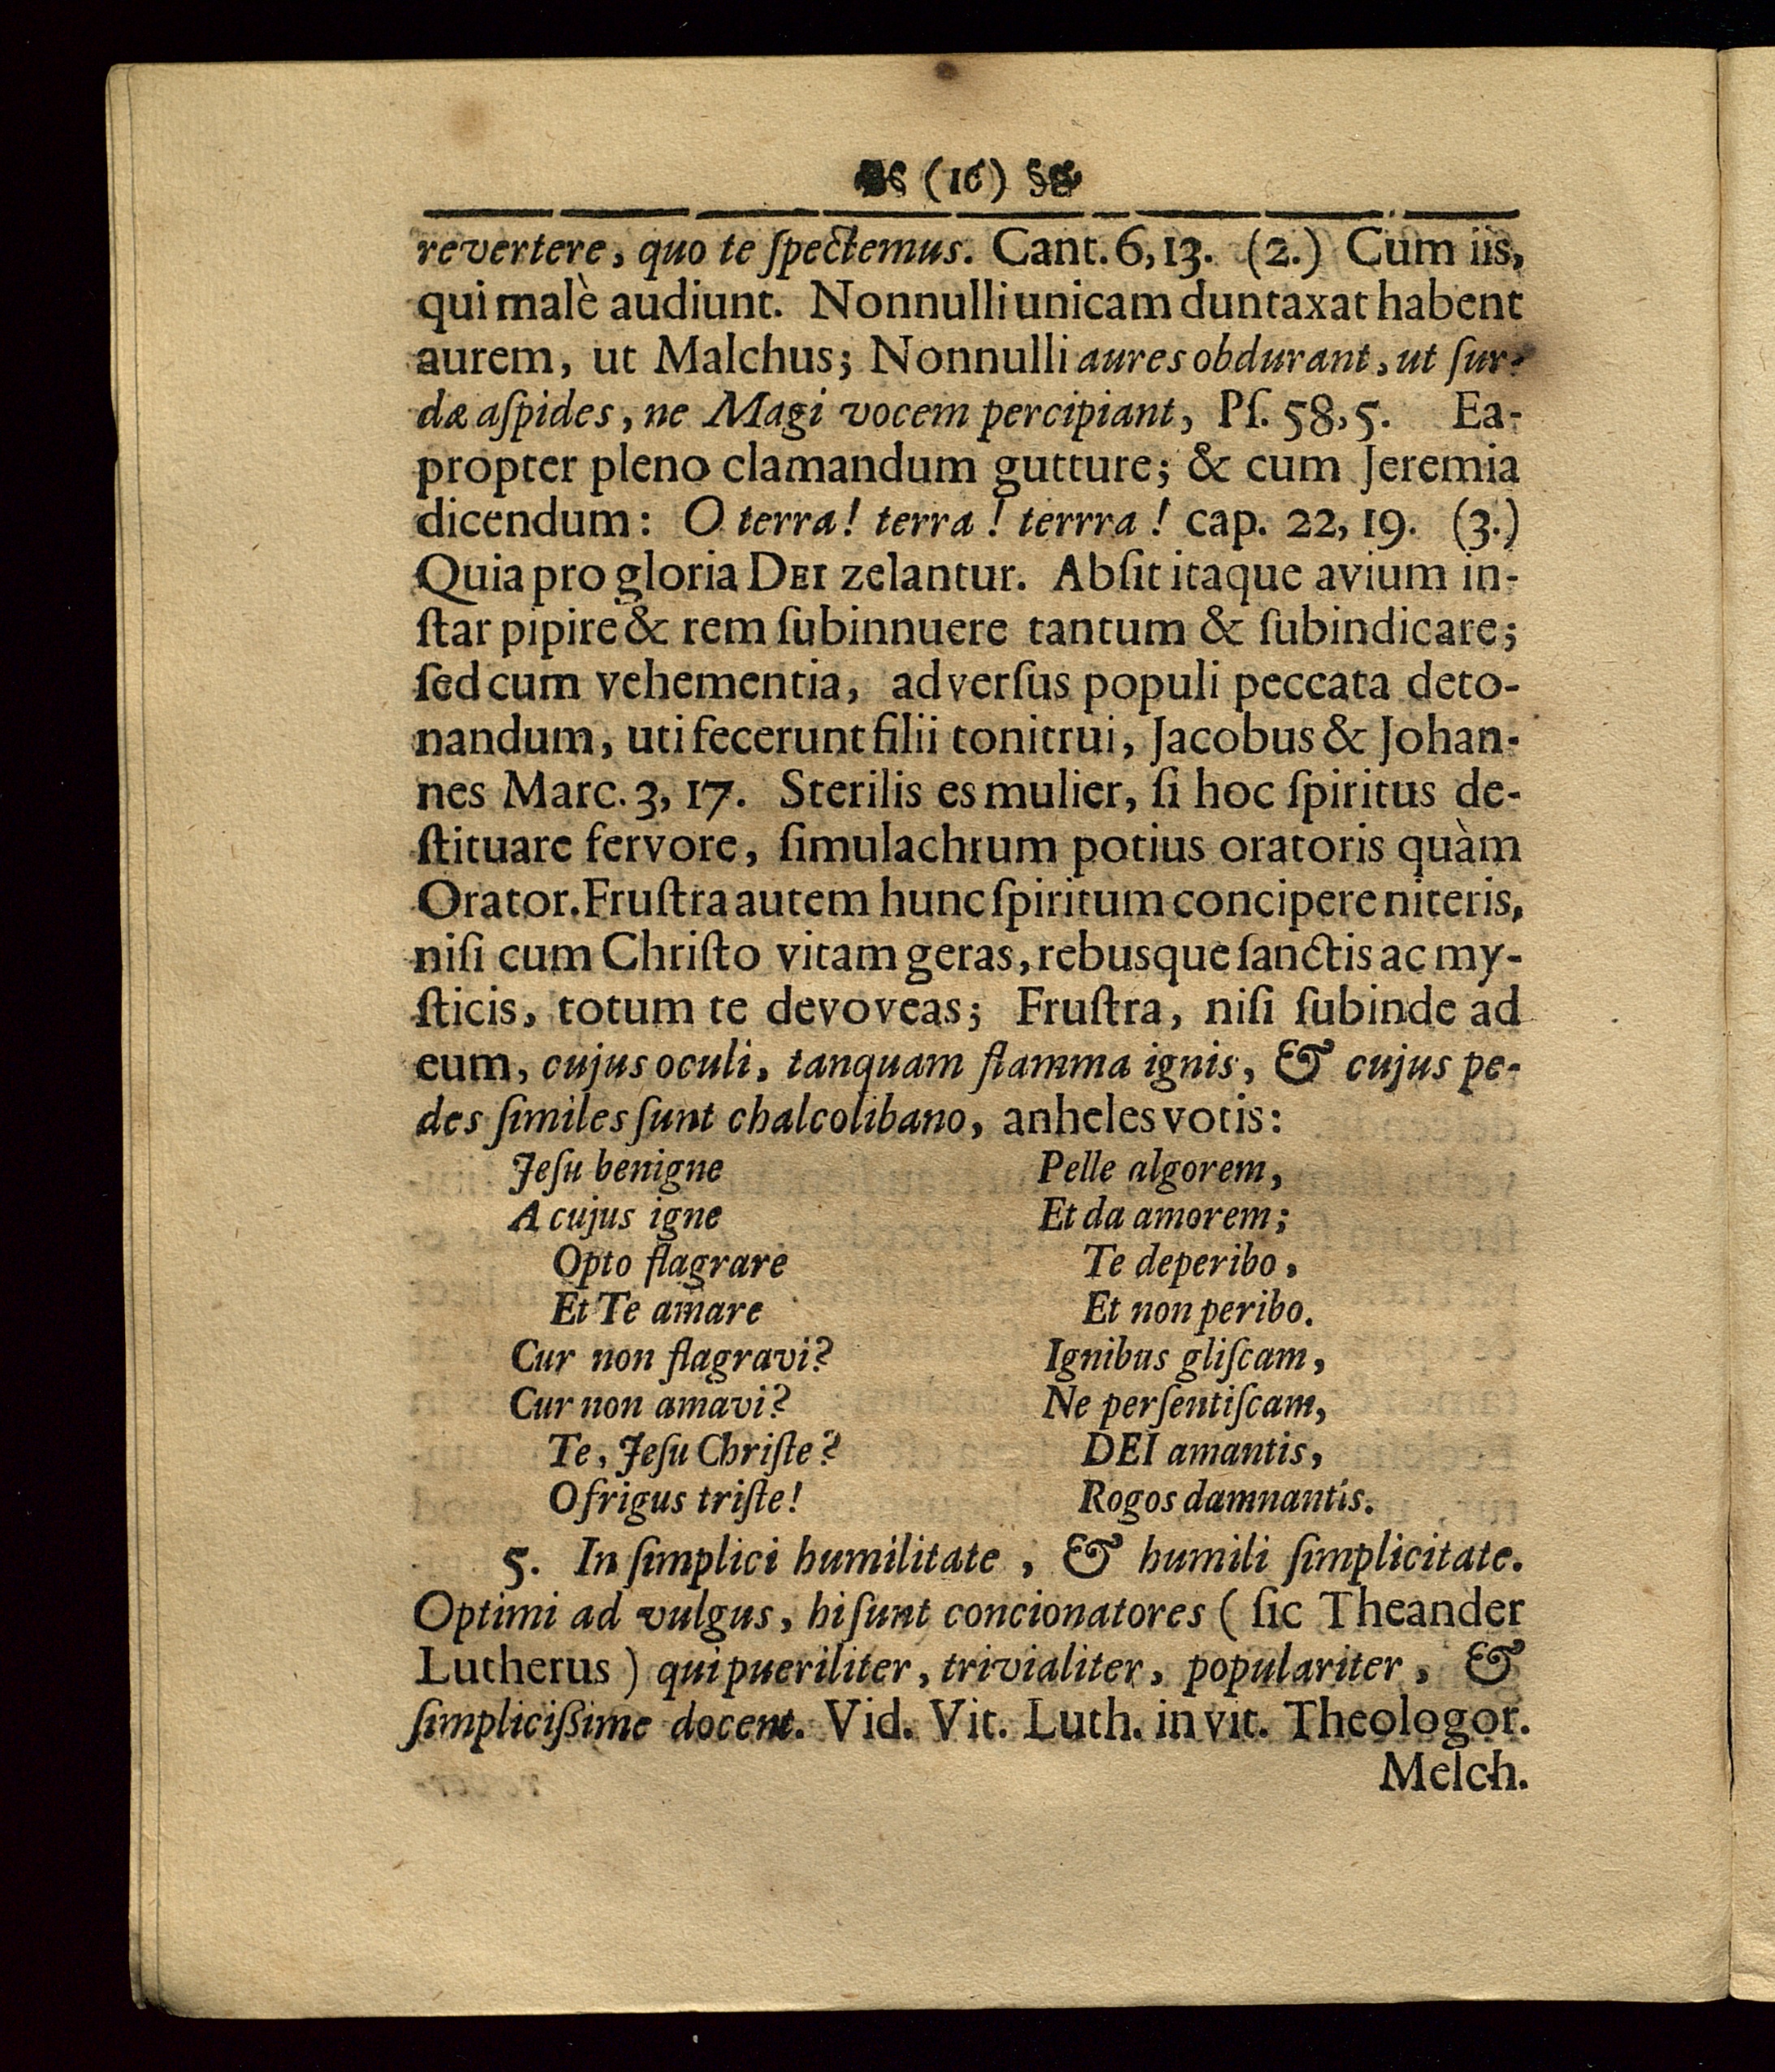 (16)
revertere, quo te ſpectemus. Cant. 6, 13. (2.) Cum iis,
qui malè audiunt. Nonnulli unicam duntaxat habent
aurem, ut Malchus; Nonnulli aures obdurant, ut ſur-
dæ aſpides, ne Magi vocem percipiant, Pſ. 58, 5. Ea-
propter pleno clamandum gutture; & cum Jeremia
dicendum: O terra! terra! terrra! cap. 22, 19. (3.)
Quia pro gloria DEI zelantur. Abſit itaque avium in-
ſtar pipire & rem ſubinnuere tantum & ſubindicare;
ſed cum vehementia, adverſus populi peccata deto-
nandum, uti fecerunt filii tonitrui, Jacobus & Johan-
nes Marc. 3, 17. Sterilis es mulier, ſi hoc ſpiritus de-
ſtituare fervore, ſimulachrum potius oratoris quàm
Orator. Fruſtra autem hunc ſpiritum concipere niteris,
niſi cum Chriſto vitam geras, rebusque ſanctis ac my-
ſticis, totum te devoveas; Fruſtra, niſi ſubinde ad
eum, cujus oculi, tanquam flamma ignis, & cujus pe-
des ſimiles ſunt chalcolibano, anheles votis:
Jeſu benigne
A cujus igne
Opto flagrare
Et Te amare
Cur non flagravi?
Cur non amavi?
Te, Jeſu Chriſte?
O frigus triſte!
Pelle algorem,
Et da amorem;
Te deperibo,
Et non peribo.
Ignibus gliſcam,
Ne perſentiſcam,
DEI amantis,
Rogos damnantis.
5. In ſimplici humilitate, & humili ſimplicitate.
Optimi ad vulgus, hi ſunt concionatores (ſic Theander
Lutherus) qui pueriliter, trivialiter, populariter, &
ſimpliciſſime docent. Vid. Vit. Luth. in vit. Theologor.
Melch.